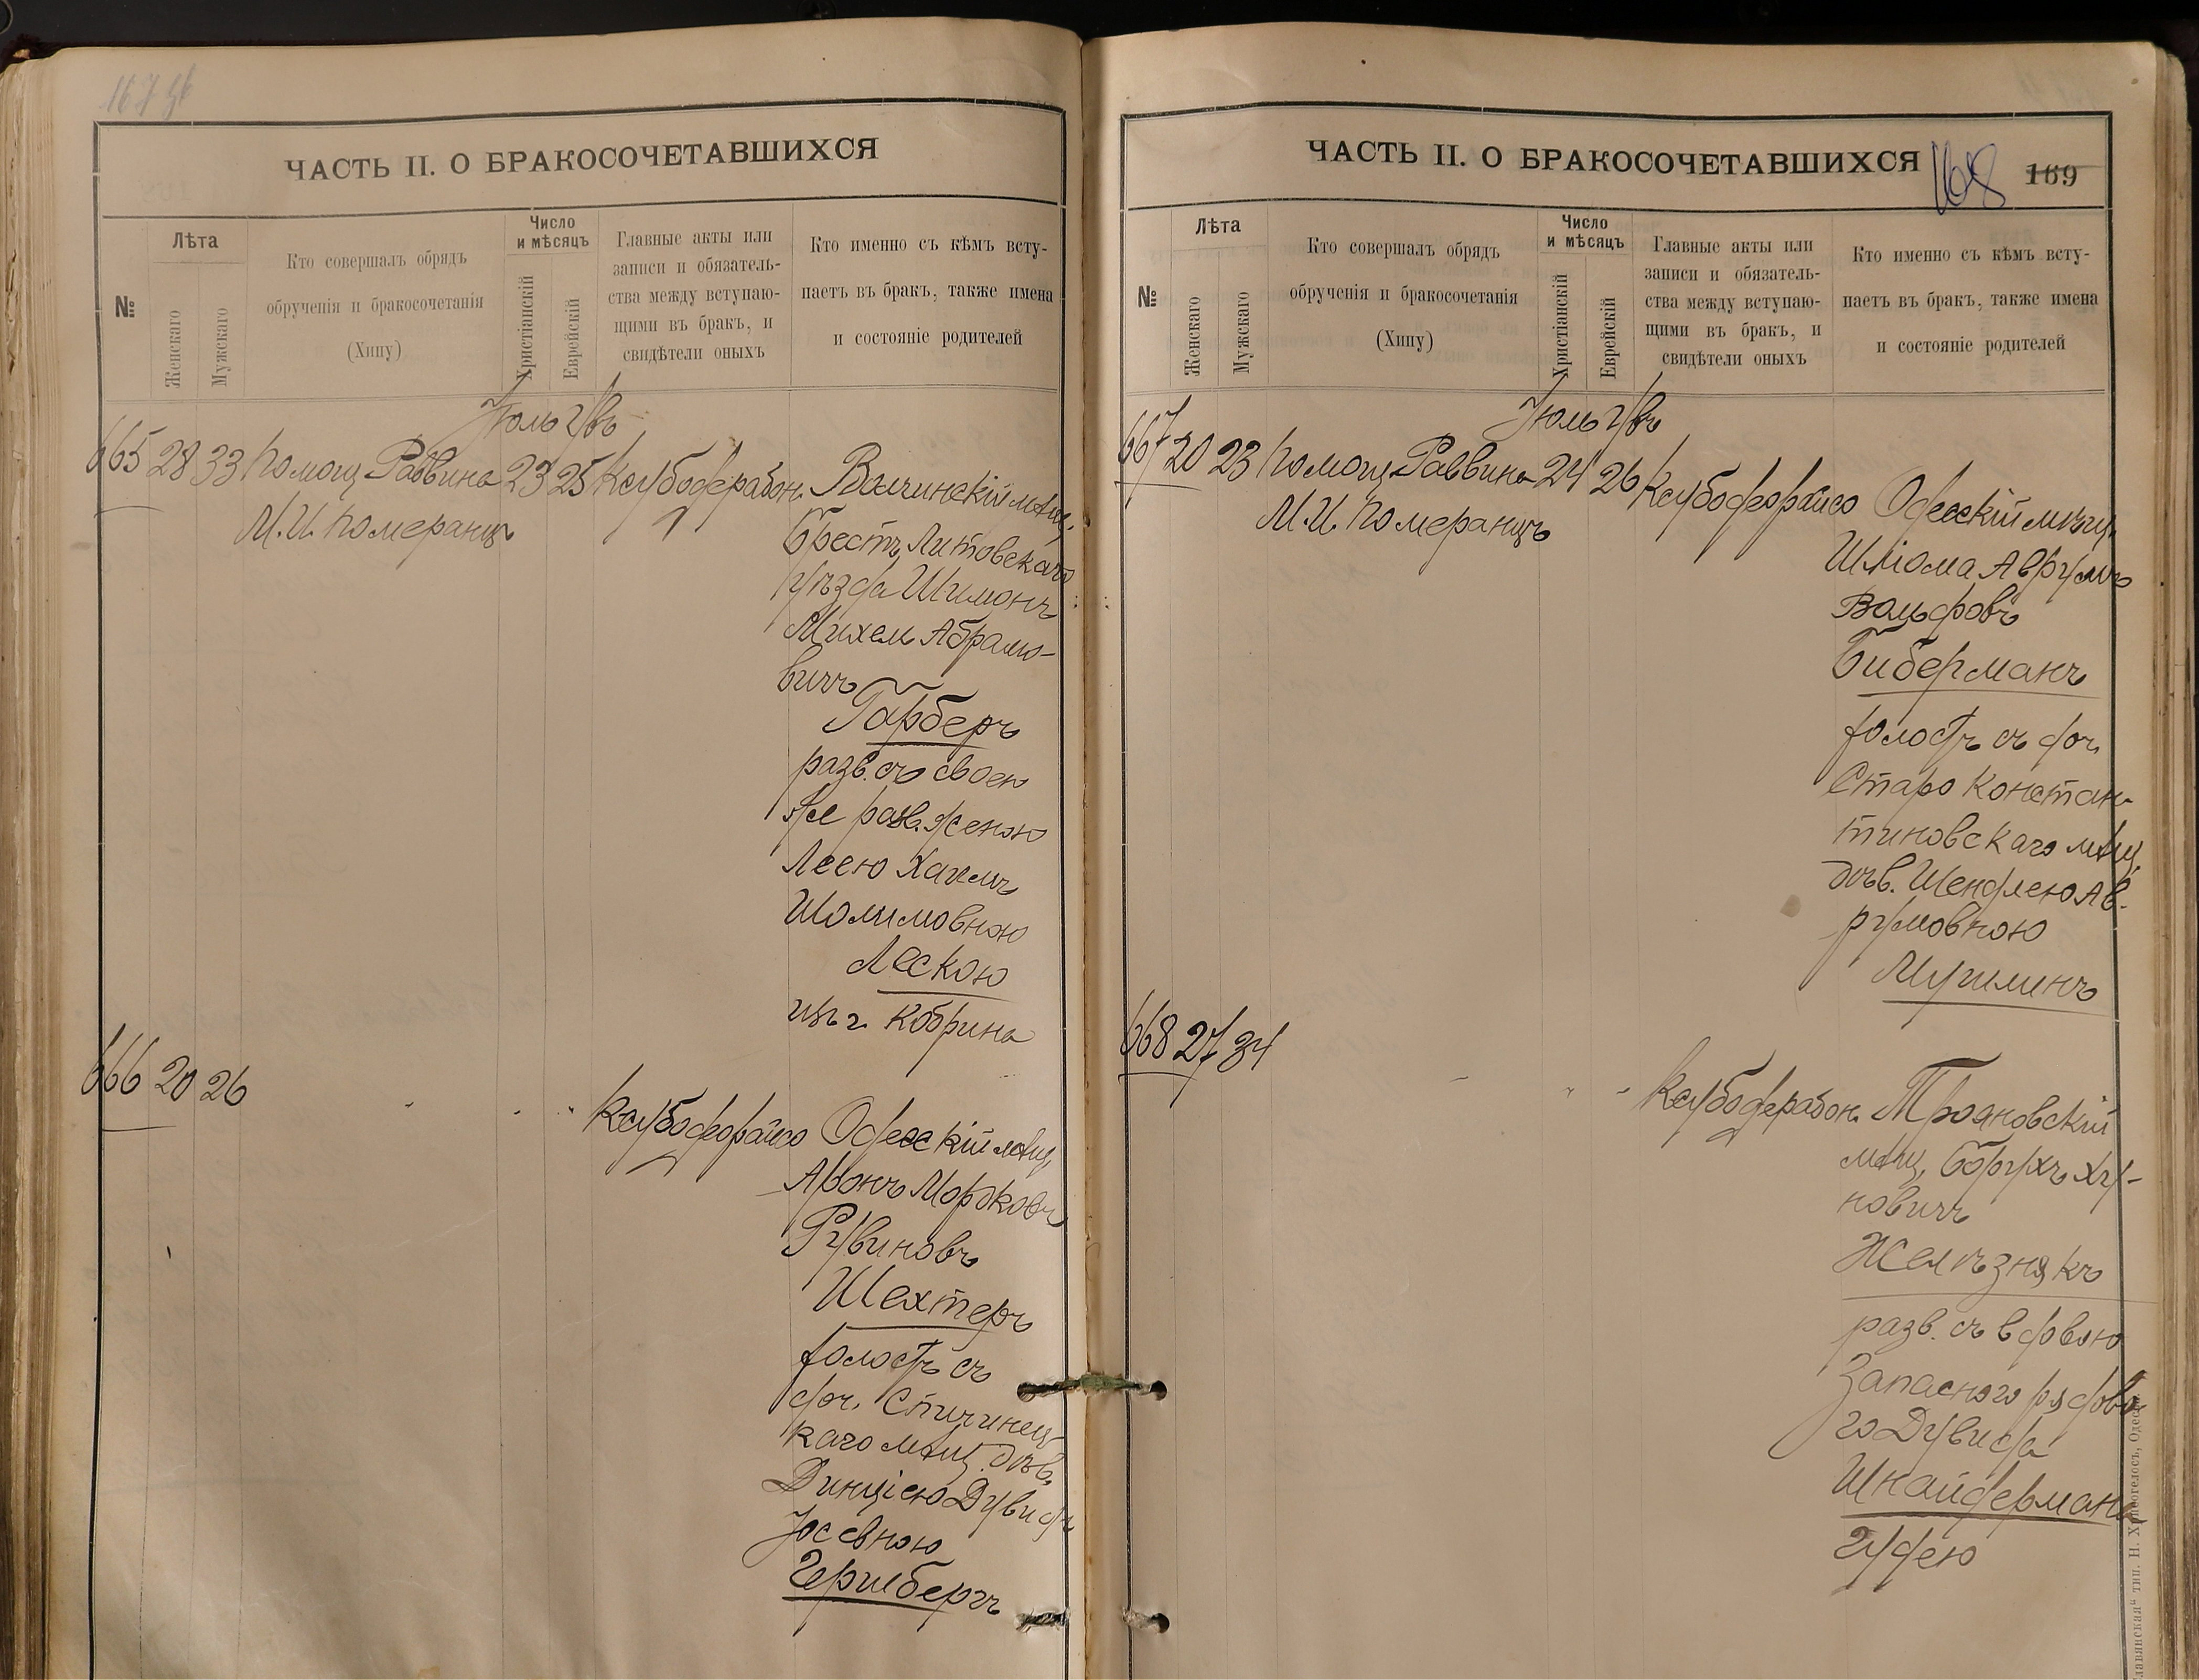 167 об
ЧАСТЬ II. О БРАКОСОЧЕТАВШИХСЯ
№
Лѣта
Женскаго
Мужскаго
Кто совершалъ обрядъ
обрученія и бракосочетанія
(Хипу)
Число
и мѣсяцъ
Христіанскій
Еврейскій
Главные акты или
записи и обязатель-
ства между вступаю-
щими въ бракъ, и
свидѣтели оныхъ
Кто именно съ кѣмъ всту-
паетъ въ бракъ, также имена
и состояніе родителей
665 28 33 Помощ Раввина 23 25
М. И. Померанцъ
Волчинскій мѣщ.
Брестъ Литовскаго
уѣзда Шимонъ
Михель Абрамо-
вичъ
Гарберъ
разв. съ своею
же разв. женою
Леею Хаемъ
Шолимовною
Лескою
изъ г. Кобрина
666 20 26
Одесскій мѣщ.
Аронъ Мордковъ
Рувиновъ
Шехтеръ
холостъ съ
доч. Спичинец
каго мѣщ. дѣв.
Динціею Дувидъ
Іосевною
Гершбергъ
ЧАСТЬ II. О БРАКОСОЧЕТАВШИХСЯ
168 169
№
Лѣта
Женскаго
Мужскаго
Кто совершалъ обрядъ
обрученія и бракосочетанія
(Хипу)
Число
и мѣсяцъ
Христіанскій
Еврейскій
Главные акты или
записи и обязатель-
ства между вступаю-
щими въ бракъ, и
свидѣтели оныхъ
Кто именно съ кѣмъ всту-
паетъ въ бракъ, также имена
и состояніе родителей
667 20 23 Помощ Раввина 24 26
М. И. Померанцъ
Одесскій мѣщ.
Шліома Аврумъ
Вольфовъ
Биберманъ
холостъ съ доч.
Старо Констан-
тиновскаго мѣщ.
дѣв. Шендлею Ав-
румовною
668 27 34
Трояновскій
мѣщ. Борухъ Ху-
новичъ
Желѣзнякъ
разв. съ вдовою
Запасного рядово
го Дувида
Шнайдермана
Гудею